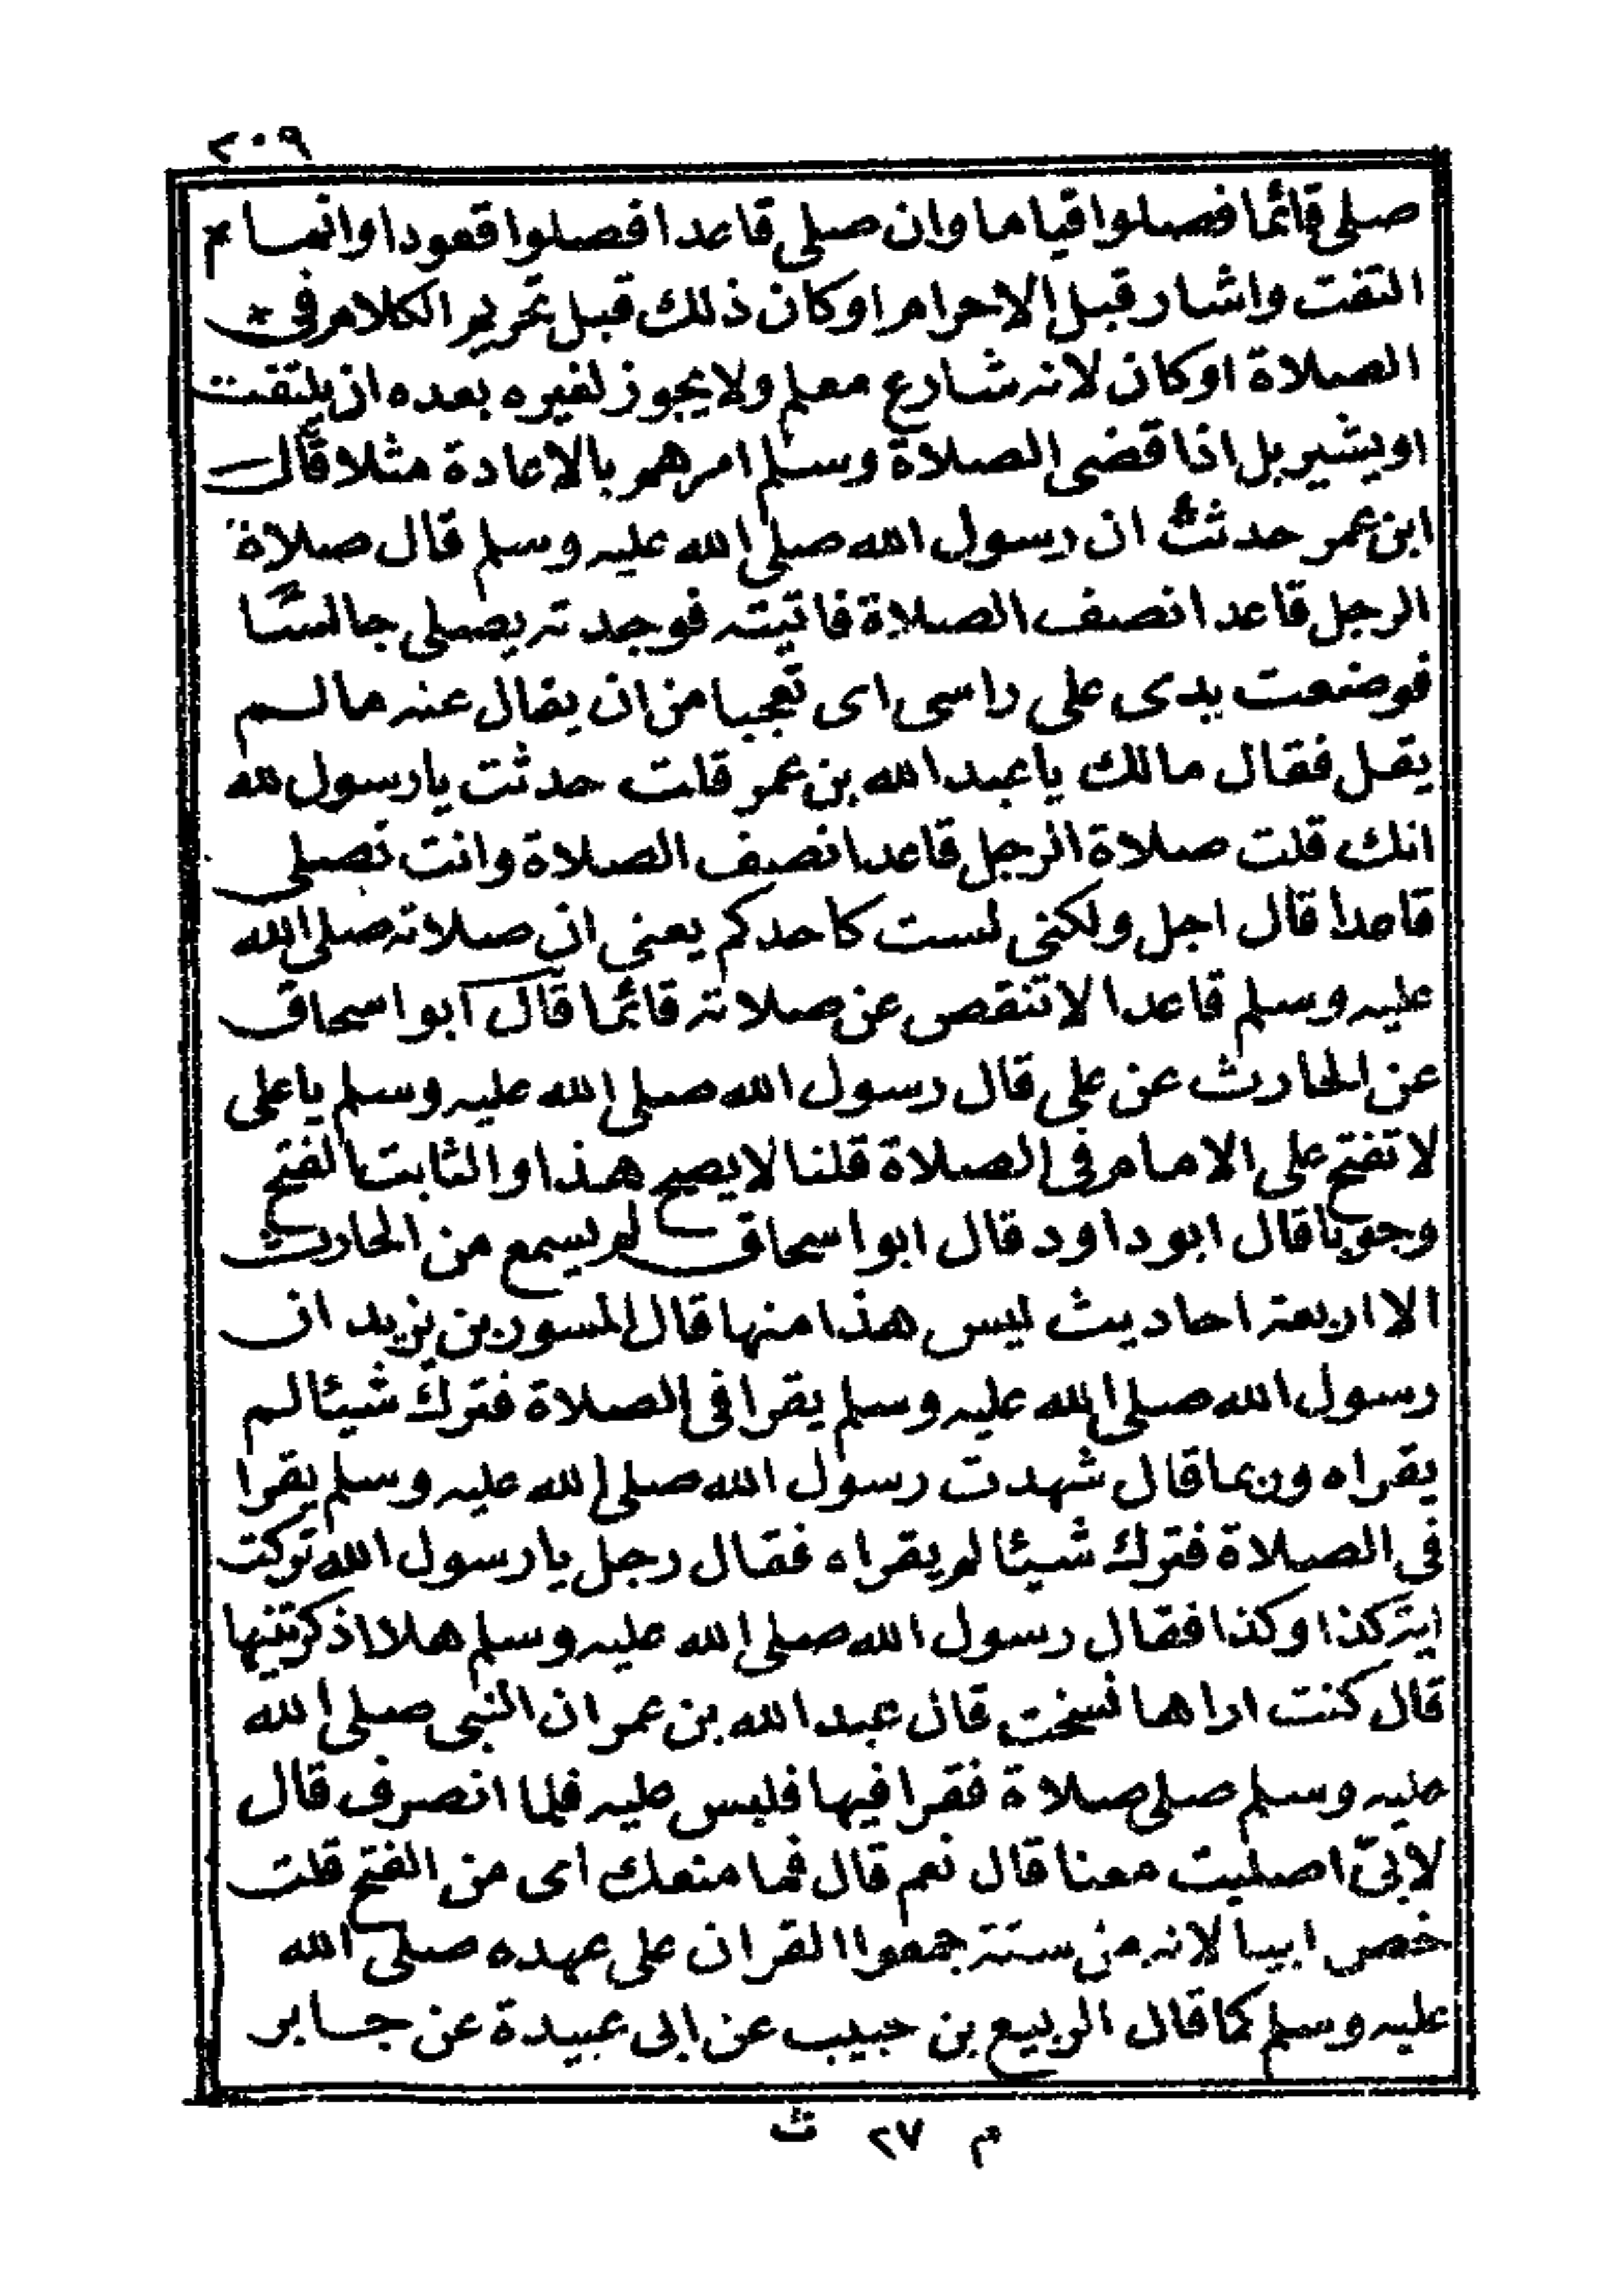 ٢٠٩
صلى قائما فصلوا قياما وان صلى قاعدا فصلوا قعودا وانما *
التفت واشار قبل الاحرام او كان ذلك قبل تحريم الكلام في *
الصلاة او كان لانه شارع معلم ولا يجوز لغيره بعده ان يلتفت
او يشير بل اذا قضى الصلاة وسلم امرهم بالاعادة مثلا قال
ابن عمر حدثت ان رسول الله صلى الله عليه وسلم قال صلاة
الرجل قاعدا نصف الصلاة فاتيته فوجدته يصلى جالسًا
فوضعت يدى على راسى اى تعجبا من ان يقال عنه ما لم
يقل فقال مالك يا عبد الله بن عمر قلت حدثت يا رسول الله
انك قلت صلاة الرجل قاعدا نصف الصلاة وانت تصلى
قاعدا قال اجل ولكنى لست كاحدكم يعنى ان صلاته صلى الله
عليه وسلم قاعدا لا تنقص عن صلاته قائما قال ابو اسحاق
عن الحارث عن على قال رسول الله صلى الله عليه وسلم يا على
لا تفتح على الامام في الصلاة قلنا لا يصح هذا والثابت الفتح
وجوبا قال ابو داود قال ابو اسحاق لم يسمع من الحارث
الا اربعة احاديث ليس هذا منها قال المسور بن يزيد ان
رسول الله صلى الله عليه وسلم يقرا فى الصلاة فترك شيئا لم
يقراه وربما قال شهدت رسول الله صلى الله عليه وسلم يقرا
في الصلاة فترك شيئا لم يقراه فقال رجل يا رسول الله تركت
اية كذا وكذا فقال رسول الله صلى الله عليه وسلم هلا اذكرتنيها
قال كنت اراها نسخت قال عبد الله بن عمر ان النبى صلى الله
عليه وسلم صلى صلاة فقرا فيها فلبس عليه فلما انصرف قال
لابىّ اصليت معنا قال نعم قال فما منعك اى من الفتح قلت
خص ابيا لانه من ستة جمعوا القران على عهده صلى الله
عليه وسلم كما قال الربيع بن حبيب عن ابى عبيدة عن جابر
م ٢٧ ث